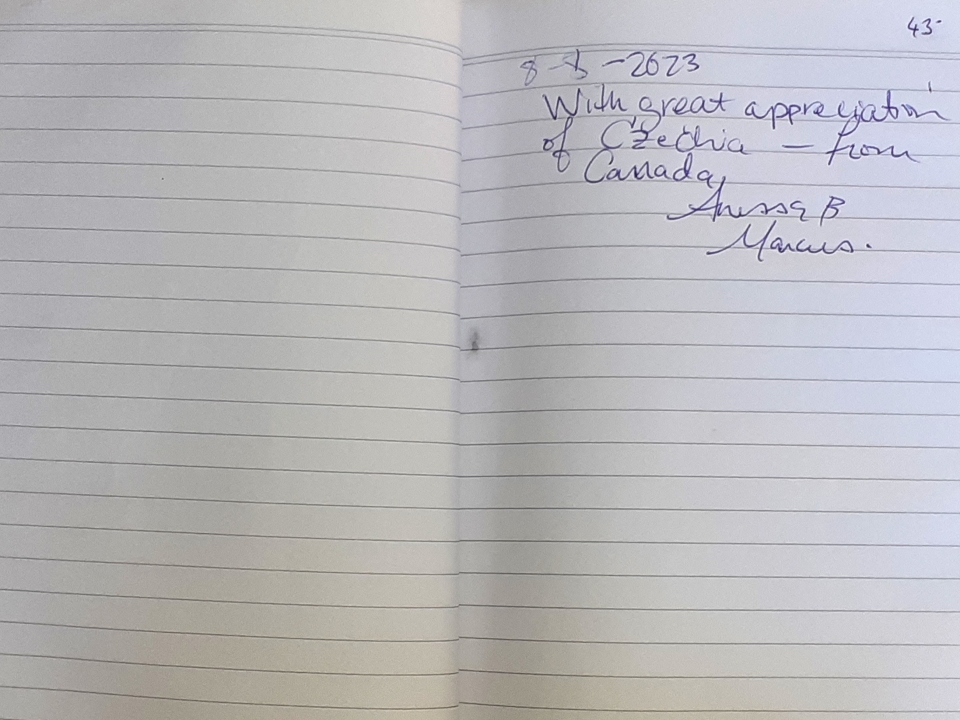 43
-2023
With great appreciation
of Czechia - from
Canada,
B
Marcus.